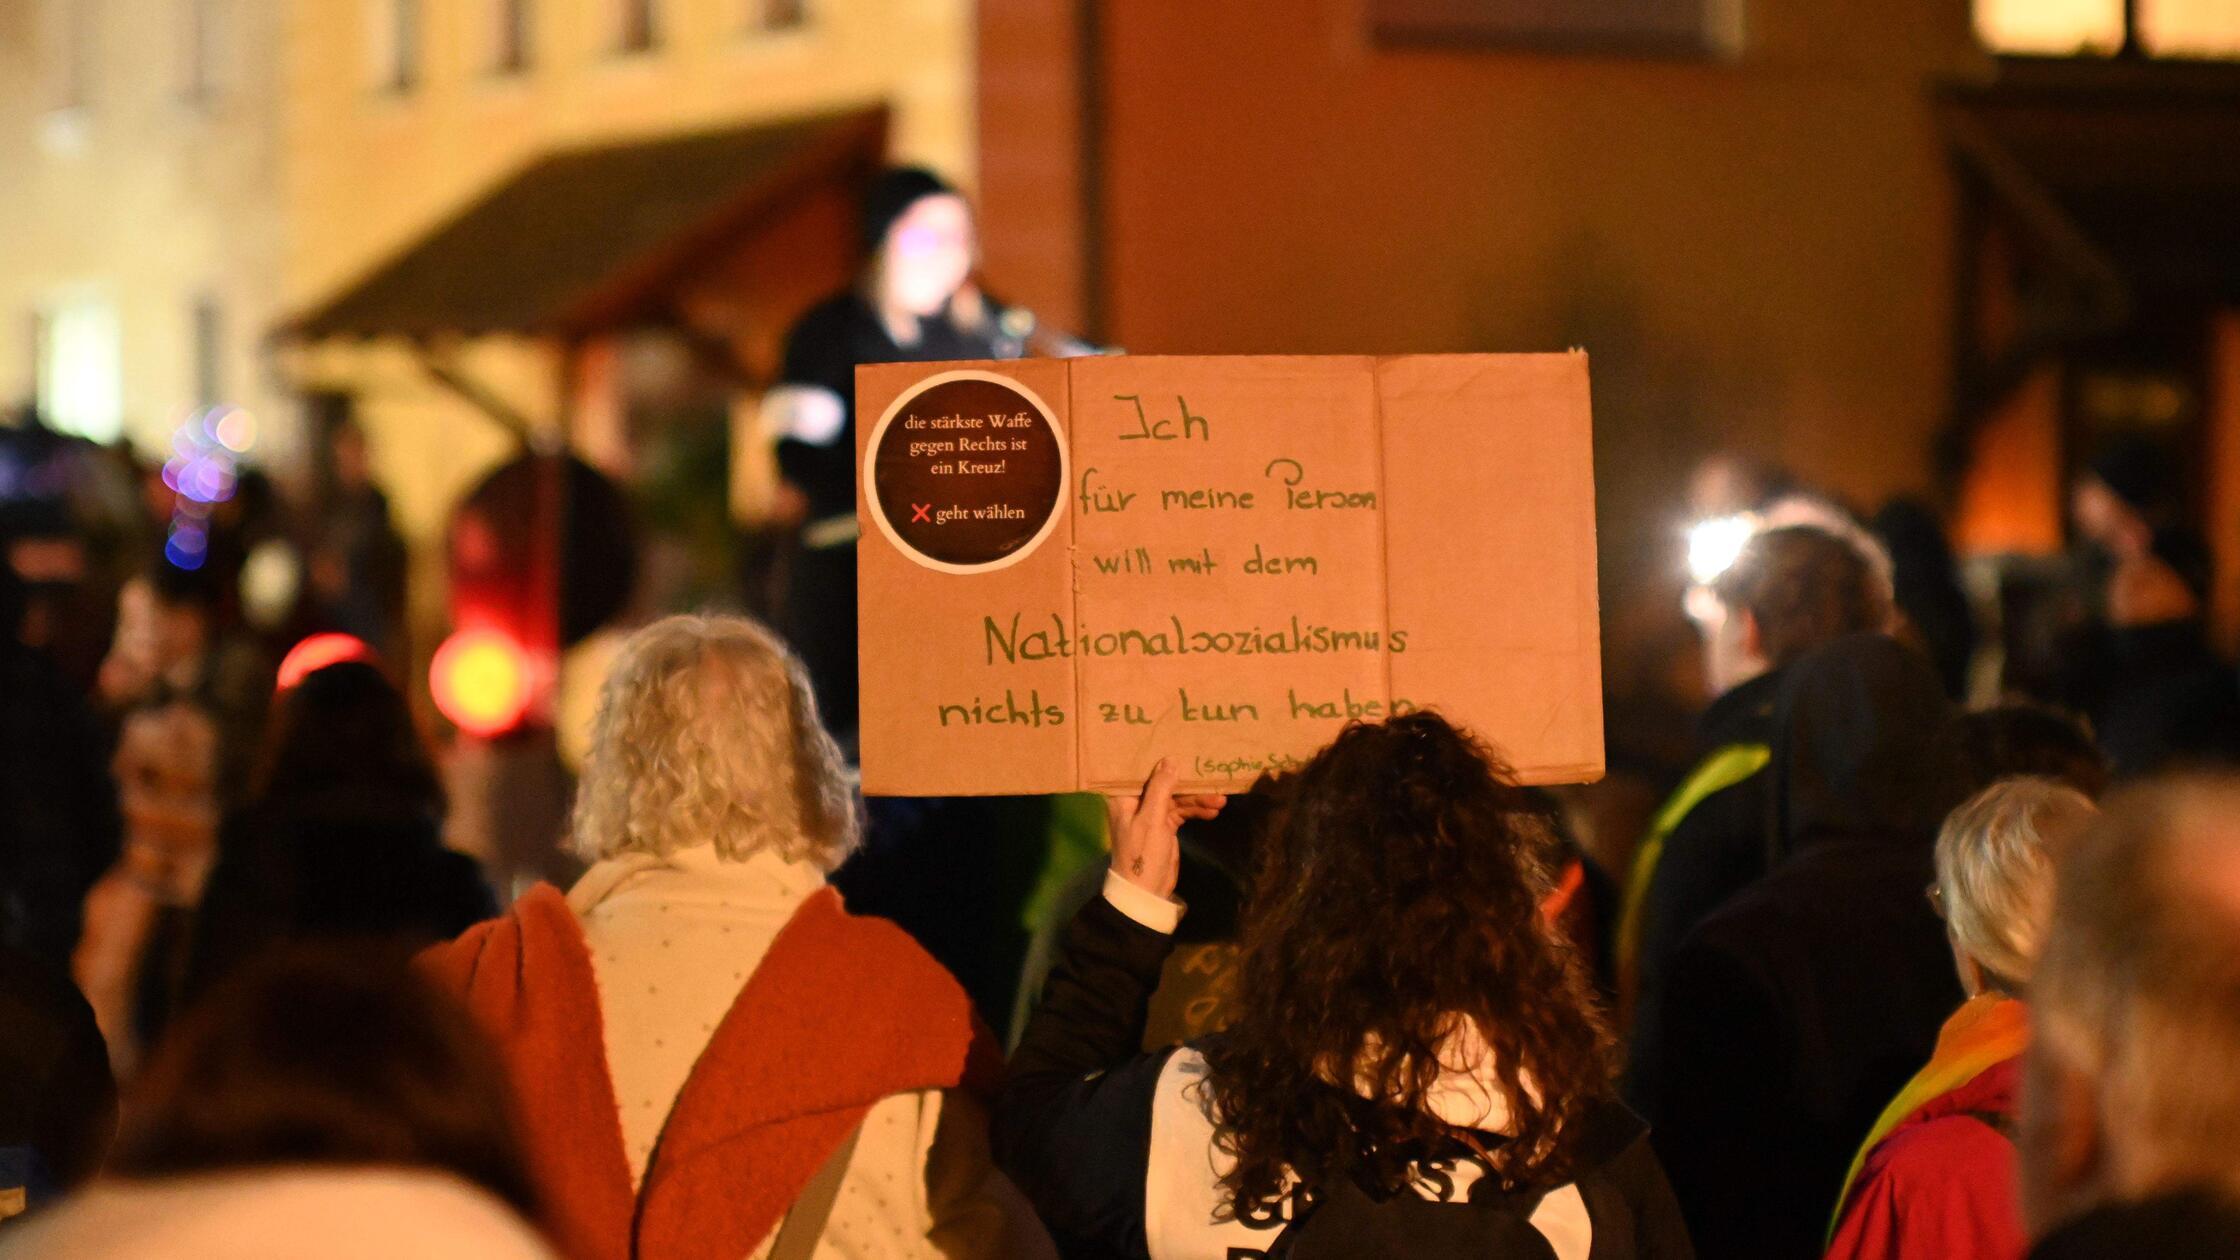 die stärkste Waffe
gegen Rechts ist
ein Kreuz!
❌ geht wählen
Ich
für meine Person
will mit dem
Nationalsozialismus
nichts zu tun haben
(Sophie